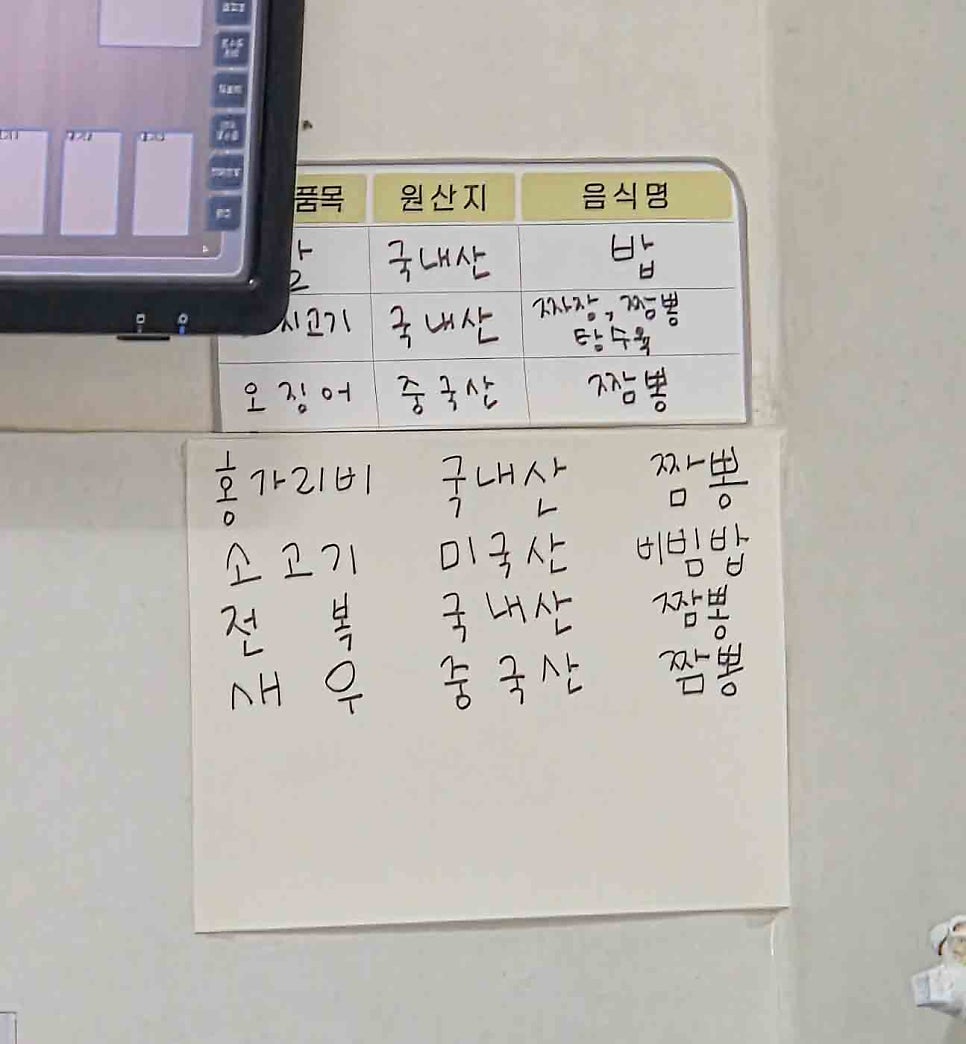 품목 원산지 음식명
국내산 밥
국내산 짜장, 짬뽕
탕수육
오징어 중국산 짬뽕
홍가리비 국내산 짬뽕
소고기 미국산 비빔밥
전 복 국내산 짬뽕
새 우 중국산 짬뽕